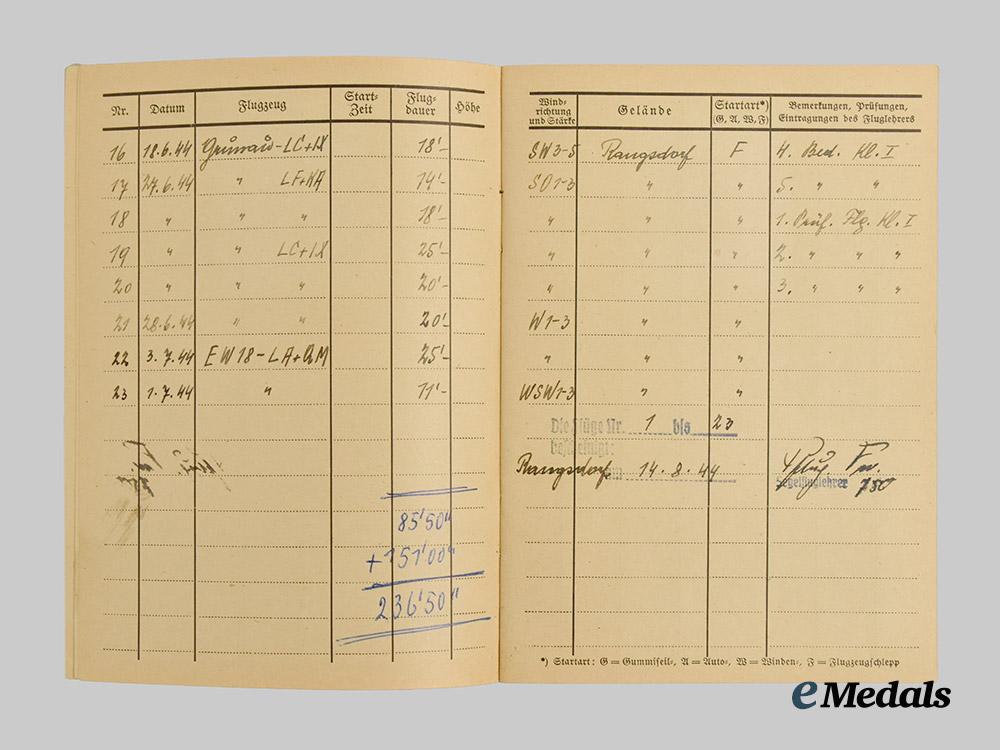 Nr. Datum Flugzeug Start-Zeit Flug-dauer Höhe
16 18.6.44 Grunau-LC+IX 18'-
17 27.6.44 " LF+KA 14'-
18 " " " 18'-
19 " " LC+IX 25'-
20 " " " 20'-
21 28.6.44 " " 20'-
22 3.7.44 EW18-LA+QM 25'-
23 1.7.44 " 11'-
85'50"
+151'00"
236'50"
Wind-richtung und Stärke Gelände Startart*) (G, A, W, F) Bemerkungen, Prüfungen, Eintragungen des Fluglehrers
SW3-5 Rangsdorf F 4. Bed. Kl. I
SO1-3 " " 5. " "
" " " 1. Prüf. Flg. Kl. I
" " " 2. " " "
" " " 3. " " "
W1-3 " "
" " "
WSW1-3 " "
Die Flüge Nr. 1 bis 23
bescheinigt:
Rangsdorf 14.8.44
Segelfluglehrer 780
*) Startart: G = Gummiseil-, A = Auto-, W = Winden-, F = Flugzeugschlepp
eMedals